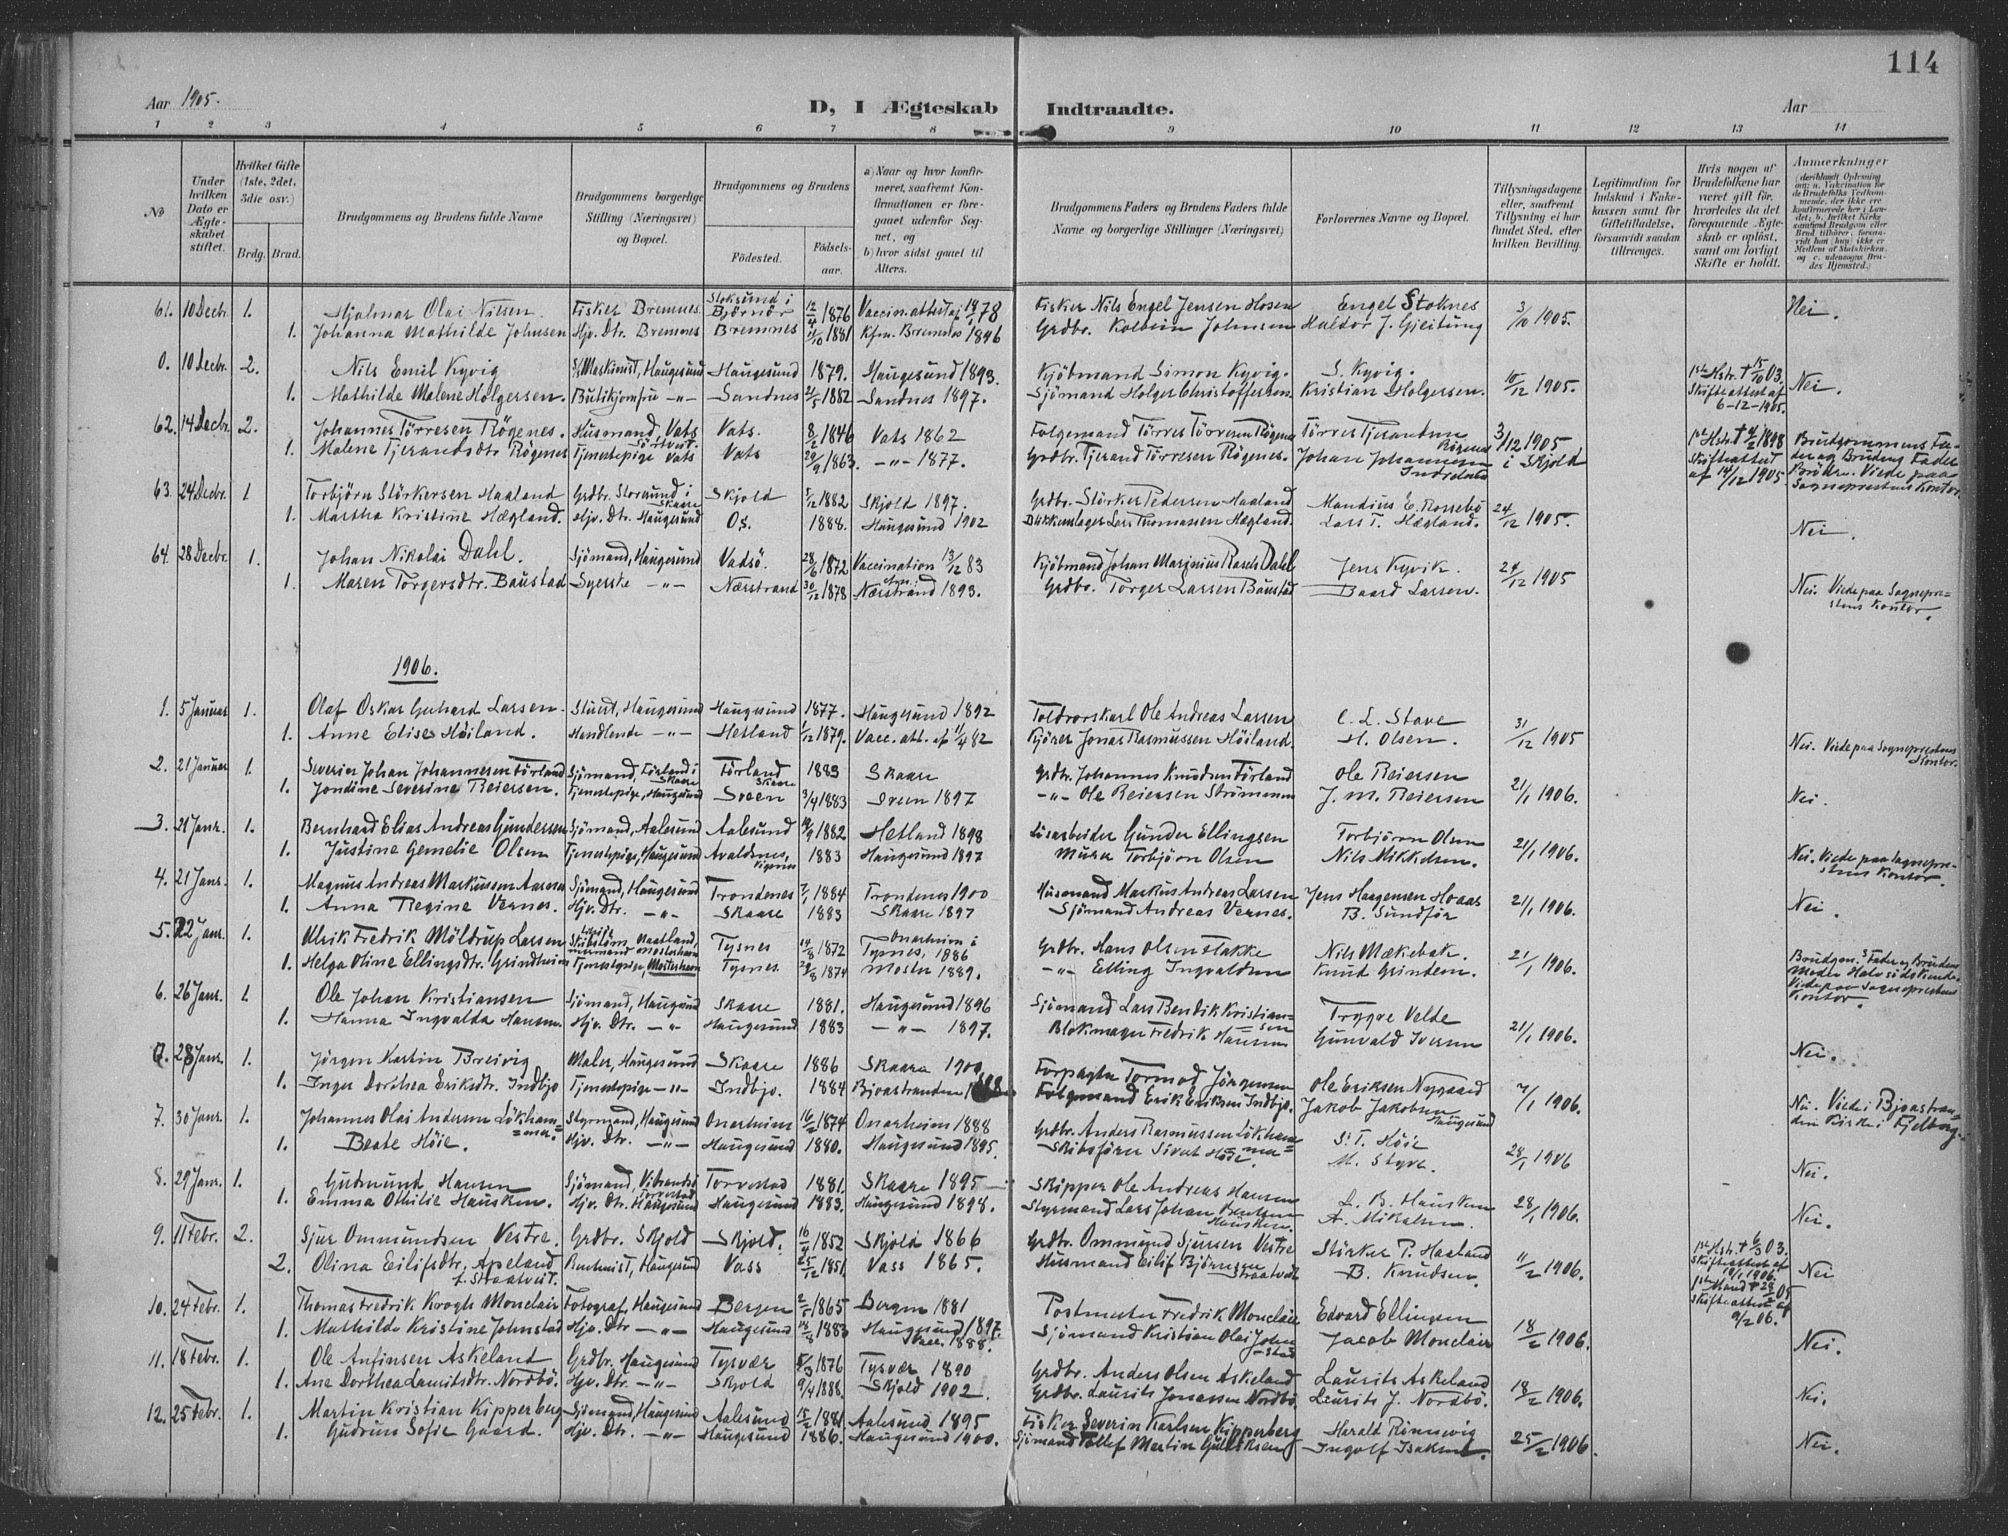 114
Aar 1905.
D, I Ægteskab Indtraadte.
Aar
1 2 3 4 5 6 7 8 9 10 11 12 13 14
No
Under hvilken Dato er Ægteskabet stiftet.
Hvilket Gifte (1ste, 2det, 3die osv.)
Brdg. Brud.
Brudgommens og Brudens fulde Navne
Brudgommens borgerlige Stilling (Næringsvei) og Bopæl.
Brudgommens og Brudens
Födested. Födsels-aar.
a) Naar og hvor konfirmeret, saafremt Konfirmationen er foregaaet udenfor Sognet, og
b) hvor sidst gaaet til Alters.
Brudgommens Faders og Brudens Faders fulde Navne og borgerlige Stillinger (Næringsvei)
Forlovernes Navne og Bopæl.
Tillysningsdagene eller, saafremt Tillysning ei har fundet Sted, efter hvilken Bevilling.
Legitimation for Indskud i Enkekassen samt for Giftetilladelse, forsaavidt saadan tiltrænges.
Hvis nogen af Brudefolkene har været gift før, hvorledes da det foregaaende Ægteskab er oplöst, samt om lovligt Skifte er holdt.
Anmærkninger
61. 10 Decbr. 1. Hjalmar Olai Nilsen. Fisker Bremnes Stoksund i Björnör 12/4 1876 Vaccin.attest af 1878 Fisker Nils Engel Jensen Hosen Engel Stoknes 3/10 1905. Nei.
1. Johanna Mathilde Johnsen Hjv. Dtr. Bremnes Bremnes 11/10 1881 Kfm. Bremnes 1896 Grdbr. Kolbein Johnsen Haldor J. Gjeitung
0. 10 Decbr. 2. Nils Emil Kyvig S/S Maskinist, Haugesund Haugesund 1879. Haugesund 1893. Kjöbmand Simon Kyvig. S. Kyvig. 10/12 1905. 1ste Hstr. † 15/10 03. Skifteattest af 6-12-1905. Nei.
1. Mathilde Malene Holgersen. Butikjomfru -"- Sandnes 21/5 1882 Sandnes 1897. Sjömand Holger Christoffersen. Kristian Holgersen.
62. 14 Decbr. 2. Johannes Törresen Rögenes. Husmand, Vats Vats. 8/2 1846 Vats 1862 Folgemand Törres Törresen Rögenes Törres Tjerandsen Rögenes 3/12 1905 i Skjold 1ste Hstr. † 4/2 1898 Skifteattest af 14/12 1905 Brudgommens Fader og Brudens Fader Brödre. Viede paa Sognepræstens Kontor.
1. Malene Tjerandsdtr Rögenes Tjenestepige Vats Vats 29/9 1863. -"- 1877. Grdbr. Tjerand Törresen Rögenes. Johan Johannesen
63. 24 Decbr. 1 Torbjörn Störkersen Haaland Grdbr. Storsund i Skaare Skjold 5/12 1882 Skjold 1897. Grdbr. Störker Pedersen Haaland Mandius E. Rossebö 24/12 1905. Nei.
1. Martha Kristine Hægland. Hjv. Dtr. Haugesund Os. 1888. Haugesund 1902 Blikkenslager Lars Thomassen Hægland. Lars T. Hægland.
64. 28 Decbr. 1. Johan Nikolai Dahl. Sjömand, Haugesund Vadsö. 28/6 1872 Vaccination 13/12 83 Kjöbmand Johan Marinius Rasch Dahl Jens Kyvik. 24/12 1905
1. Maren Torgersdtr. Baustad Syerske -"- Nærstrand 30/12 1878 Nærstrand 1893. Grdbr. Torger Larsen Baustad Baard Larsen. Nei. Viede paa Sognepræstens Kontor.
1906.
1. 5 Januar 1. Olaf Oskar Gerhard Larsen. Stuert, Haugesund Haugesund 1877. Haugesund 1892 Toldrorskarl Ole Andreas Larsen C. L. Stave 31/12 1905
1. Anne Elise Höiland. Handlende -"- Hetland 1/12 1879. Vacc. att. af 1/4 82 Kjörer Jonas Rasmussen Höiland. H. Olsen. Nei. Viede paa Sognepræstens Kontor.
2. 21 Januar 1. Severin Johan Johannesen Förland Sjömand, Förland i Skaare Förland Skaare 1883 Skaare Grdbr. Johannes Knudsen Förland Ole Reiersen 21/1 1906.
1. Jondine Severine Reiersen. Tjenestepige, Haugesund Sveen 3/4 1883 Sveen 1897 -"- Ole Reiersen Strömmen J. M. Reiersen Nei.
3. 21 Janr. 1. Bernhard Elias Andreas Gundersen Sjömand, Aalesund Aalesund 19/9 1882 Hetland 1898 Lösarbeider Gunder Ellingsen Torbjörn Olsen 21/1 1906.
1. Justine Gemelie Olsen Tjenestepige, Haugesund Avaldsnes, 1883 Haugesund 1897 Murer Torbjörn Olsen Nils Mikkelsen. Nei. Viede paa Sognepræstens Kontor.
4. 21 Janr. 1. Magnus Andreas Markussen Aasen Sjömand, Haugesund Trondenes 7/1 1884 Trondenes 1900 Husmand Markus Andreas Larsen Jens Haagensen Hoaas 21/1 1906.
1. Anna Regine Vernes. Hjv. Dtr. -"- Skaare 1883 Skaare 1897 Sjömand Andreas Vernes. B. Sundför Nei.
5. 22 Janr. 1. Ulrik Fredrik Möldrup Larsen Tysnes 14/8 1872 Onarheim i Tysnes, 1886 Grdbr. Hans Olsen Flakke Nils Mækebak. 21/1 1906.
1. Helga Oline Ellingsdtr. Grindheim Tjenestepige, Mosterhavn Tysnes 29/8 1874 Moster 1889. -"- Elling Ingvaldsen Knud Grindem. Brudgom.s Fader og Brudens Moder Halvsödskende Viede paa Sognepræstens Kontor.
6. 26 Janr. 1. Ole Johan Kristiansen Sjömand, Haugesund Skaare 1881. Haugesund 1896 Sjömand Lars Bendik Kristiansen Trygve Velde 21/1 1906.
1. Hanna Ingvalda Hansen Hjv. Dtr. -"- Haugesund 1883 -"- 1897. Blokmager Fredrik Hansen Gunvald Iversen Nei.
0. 28 Janr. 1. Jörgen Martin Breivig Maler, Haugesund Skaare 1886 Skaare 1900 Forpagter Tormod Jörgensen Ole Eriksen Nygaard 7/1 1906.
1. Inger Dorthea Eriksdtr. Indbjo Tjenestepige -"- Indbjo. 1884 Bjoastranden Folgemand Erik Eriksen Indbjo. Jakob Jakobsen Haugesund Nei. Viede i Bjoastranden Kirke i Fjelberg.
7. 30 Janr. 1. Johannes Olai Andersen Lökhammer. Styrmand, Haugesund Onarheim 16/2 1874 Onarheim 1888 Grdbr. Anders Rasmussen Lökhammer S. T. Höie 28/1 1906
1. Beate Höie. Hjv. Dtr. -"- Haugesund 1880. Haugesund 1895. Skibsförer Sivert Höie. M. Styve. Nei.
8. 29 Janr. 1. Gudmund Hansen Sjömand, Vibrandsö Torvestad Torvestad 1881. Skaare 1895 Skipper Ole Andreas Hansen L. B. Hausken 28/1 1906.
1. Emma Othilie Hausken. Hjv. Dtr. Haugesund Haugesund 1883. Haugesund 1898. Styrmand Lars Johan Bentsen Hausken. A. Mikalsen. Nei.
9. 11 Febr. 2. Sjur Ommundsen Vestre. Grdbr. Skjold Skjold. 16/4 1852 Skjold 1866 Grdbr. Ommund Sjursen Vestre Störker P. Haaland 11/2 1906. 1ste Hstr. † 6/3 03. Skifteattest af 19/1 1906.
2. Olina Eilifsdtr. Apeland f. Straatveit. Rentenist, Haugesund Vass 25/12 1851 Vass 1865. Husmand Eilif Björnsen Straatveit B. Knudsen. 1ste Mand † Skifteattest af 9/2 06. Nei
10. 24 Febr. 1. Thomas Fredrik Krogh Monclair Fotograf, Haugesund Bergen 2/5 1865 Bergen 1881 Postmester Fredrik Monclair Edvard Ellingsen 18/2 1906.
1. Mathilde Kristine Johnstad Hjv. Dtr. -"- Haugesund 18/8 1883 Haugesund 1897. Vacc. 1888. Sjömand Kristian Olai Johnstad Jacob Monclair Nei.
11. 18 Febr. 1. Ole Anfinsen Askeland Grdbr. Haugesund Tysvær 5/3 1876 Tysvær 1890 Grdbr. Anders Olsen Askeland Laurits Askeland 18/2 1906.
1. Ane Dorthea Lauritsdtr. Nordbö. Hjv. Dtr. -"- Skjold 9/4 1888. Skjold 1902. Grdbr. Laurits Jonassen Nordbö. Laurits J. Nordbö. Nei.
12. 25 Febr. 1. Martin Kristian Kipperberg Sjömand, Haugesund Aalesund 15/2 1881. Aalesund 1895 Fisker Severin Karlsen Kipperberg Harald Rinnevig 25/2 1906.
1. Gudrun Sofie Gaard. Hjv. Dtr. -"- Haugesund 1886. Haugesund 1900. Sjömand Tollef Martin Gulliksen Ingolf Isaksen. Nei.